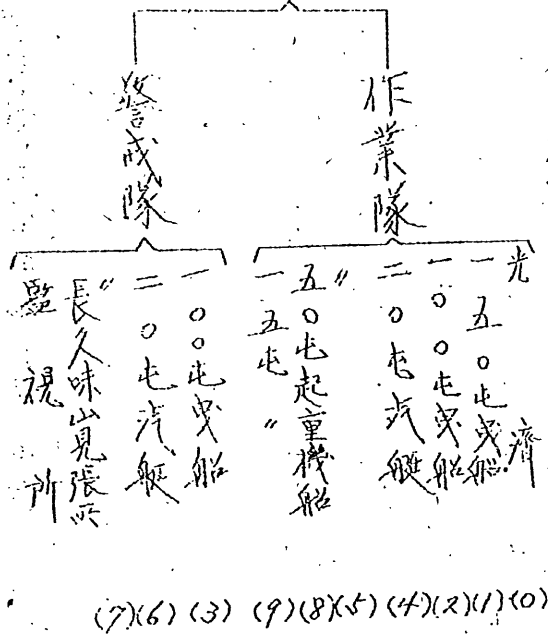 作業隊
光済
一五〇屯曳船
一〇〇屯曳船
二〇屯汽艇
〃
五〇屯起重機船
一五屯〃
警戒隊
一〇〇屯曳船
二〇屯汽艇
〃
長久味山見張所
監視所
(7)(6) (3) (9)(8)(5) (4)(2)(1)(0)